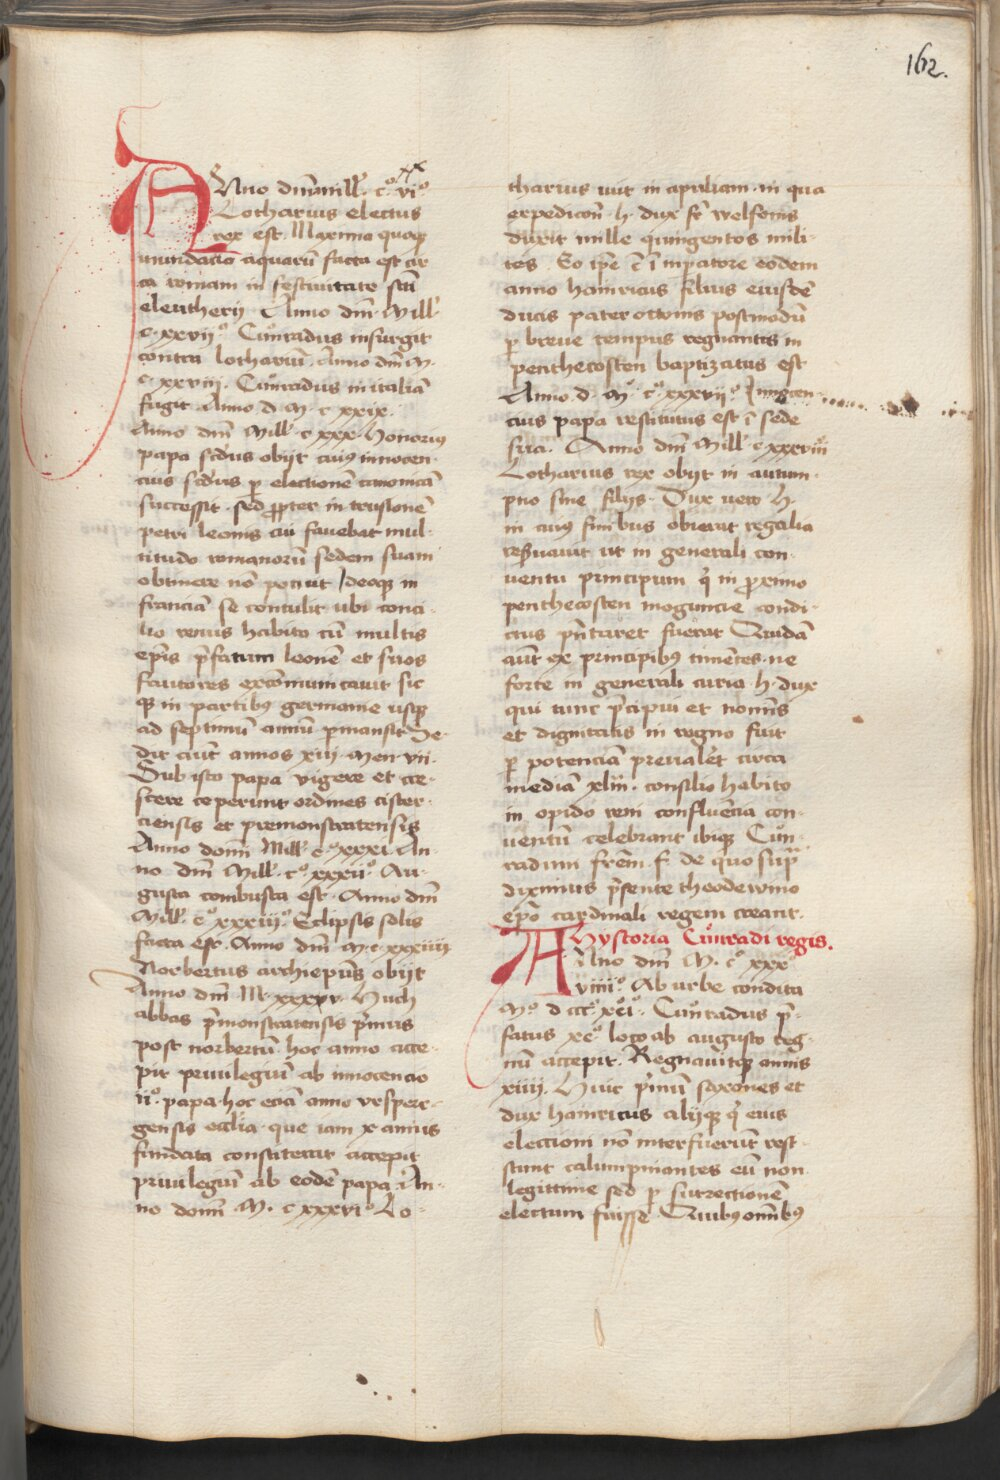 162.
ANno dm̄ mill̓ · c̊ · xx vi̊
Lotharius electus
rex est. Maxima quoqꝫ
inundacio aquarū facta est cir
ca romam in festiuitate scī
eleutherij · Anno dm̄ Mill̓
c · xxvij̊ Cůnradus insurgit
contra lothariū. Anno dm̄ M.
c · xxviij. Cůnradus in italiā
fugit Anno d M c xxix.
Anno dm̄ Mill̓ c xxx Honorius
papa scd̓us obijt cui9 innocen-
cius scd̓us ꝑ electionē canonicā
successit · sed ꝓpter in trusionē
petri leonis cui fauebat mul-
titudo romanorū sedem suam
obtinere nō potuit Ideoqꝫ in
franciā se contulit ubi conci-
lio remis habito cū multis
ep̄is p̄fatum leonē et suos
fautores excōmunicauit sic
qꝫ in partibꝰ germanie usqꝫ
ad septimū annū ꝑmansit Se-
dit aūt annos xiij. Men vij.
Sub isto papa vigere et cre-
scere ceperunt ordines cister-
ciensis et premonstratensis
Anno domī Mill̓ c̊ xxxi An-
no dm̄ Mill̓ c̊ xxxij̊ Au-
gusta combusta est. Anno dm̄
Mill̓ c̊ xxxiij̊ Eclipsis solis
facta est. Anno dm̄ M. c. xxxiiij
Norbertus archiep̄us obijt
Anno dm̄ M. xxxxv. Huch
abbas p̄monstratensis p̄mus
post norbertū hoc anno acce-
pit priuilegiū ab innocencio
ij̊. papa · hoc eciā anno vrsperr-
gensis eccl̄ia · que iam x annis
fundata constiterat accepit
priuilegiū ab eodē papa. An-
no domī M. c xxxvi̊ Lo-
tharius iuit in apuliam · in qua
expedicōe · h. dux fr̄ welfonis
duxit mille quingentos mili-
tes. Eo ip̄e ē ī inpatore eodem
anno hainricus filius eiusdē
ducis pater ottonis postmodū
ꝑ breue tempus regnantis in
penthecosten baptizatus est
Anno d. m̊. c̊. xxxvij̊ Innocen-
cius papa restitutus est ī sede
sua. Anno dm̄ Mill̓ c xxxviij̊
Lotharius rex obijt in autum-
pno sine filijs. Dux vero h.
in cuiꝰ finibus obierat regalia
reseruauit ut in generali con-
uentu principum q̓ in ꝓximo
penthecosten moguncie condi-
ctus p̄ntaret fuerat Quidā
aūt ex principibꝰ timētes · ne
forte in generali curia · h · dux
qui tunc p̄cipui et nominis
et dignitatis in regno fuit
ꝑ potenciā preualēt circa
mediā xlm̄ · consilio habito
in opido reni confluēcia con-
uentū celebrant ibiqꝫ Cůn-
radum fr̄em · f. de quo sup̄
diximus p̄sente theodewino
ep̄o cardinali regem creant.
Hystoria Cůnradi regis.
ANno dm̄ M. c̊ xxx
viiij̊ Ab urbe condita
M̊ d ccc̊ xci̊. Cůnradus p̄-
fatus xc̊ loco ab augusto reg-
nū accepit. Regnauitqꝫ annis
xiiij. Huic p̄mū saxones et
dux hainricus alijqꝫ q̓ eius
eleccioni nō interfuerūt rest-
stunt calumpniantes eū non
legittime sed ꝑ surrectionē
electum fuisse Quibꝰ omībꝰ